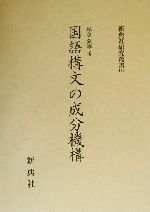 新典社研究叢書
国語構文の成分機構
新典社